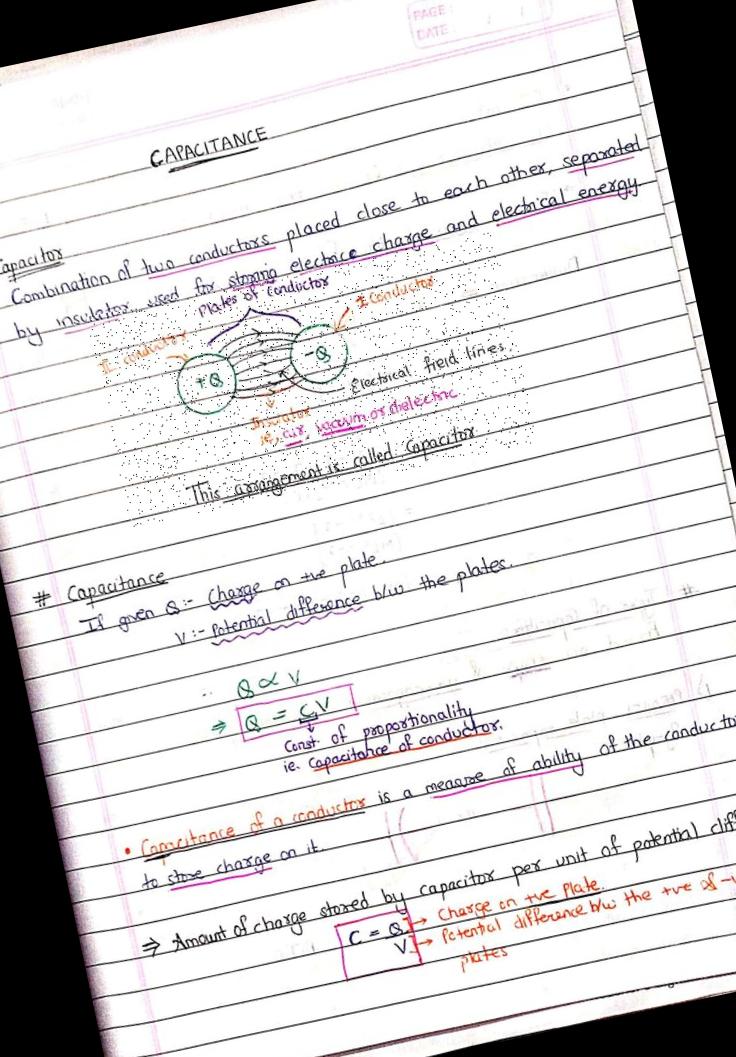 PAGE:
DATE: / /
CAPACITANCE
Capacitor
Combination of two conductors placed close to each other, separated
by insulator, used for storing electrice charge and electrical energy
Plates of Conductor
I Conductor
II Conductor
+Q
-Q
Electrical field lines
Insulator
ie, air, vacuum or dielectric
This arrangement is called Capacitor
# Capacitance
If given Q :- Charge on +ve plate.
V :- Potential difference b/w the plates.
∴ Q ∝ V
⇒ Q = CV
Const. of proportionality
ie. Capacitance of conductor.
• Capacitance of a conductor is a measure of ability of the conducto
to store charge on it.
⇒ Amount of charge stored by capacitor per unit of potential diff
C = Q/V
→ Charge on +ve Plate.
→ Potential difference b/w the +ve & -v
plates